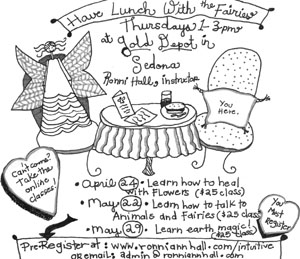 Have Lunch With the Fairies
Thursdays 1-3pm
at Gold Depot in
Sedona
Ronni Hall, instructor
You
Here.
Can't come?
Take the
online
classes.
• April 24 • Learn how to heal
with Flowers ($25 class)
• May 22 • Learn how to talk to
Animals and Fairies ($25 class)
• May 29 • Learn earth magic!
($25 class)
You
Must
Register
Pre-Register at: www.ronniannhall.com/intuitive
or email: admin@ronniannhall.com